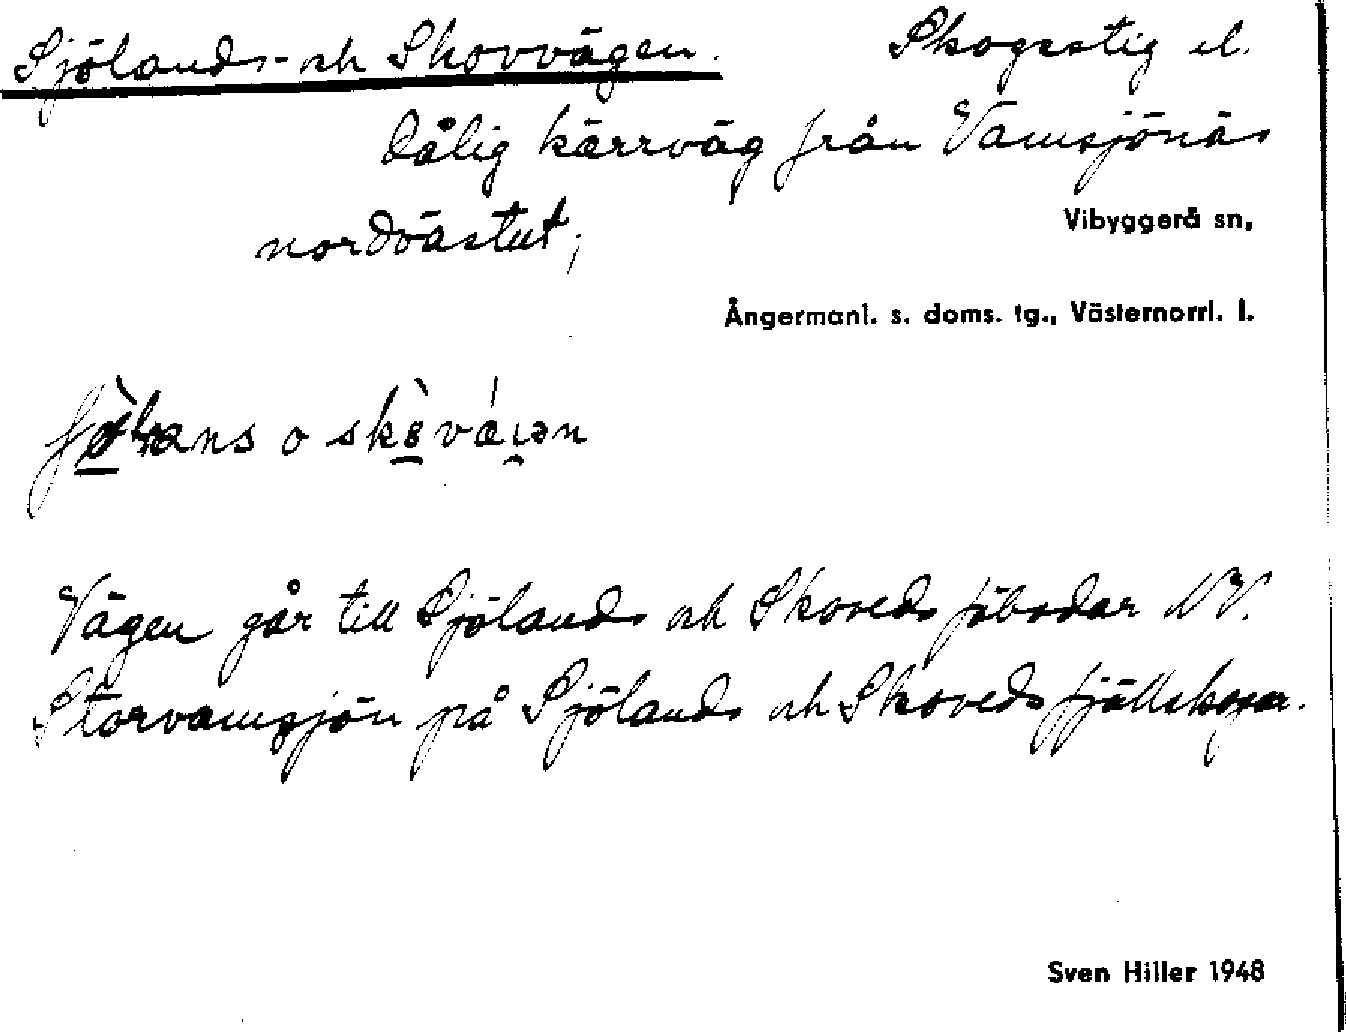 Sjölands- och Skovvägen. Skogsstig el.
dålig kärrväg från Vamsjönäs
nordvästut;
Vibyggerå sn,
Ångermanl. s. doms. tg., Västernorrl. l.
Vägen går till Sjölands och Skoveds fäbodar NV.
Storvamsjön på Sjölands och Skoveds fjällskogar.
Sven Hiller 1948